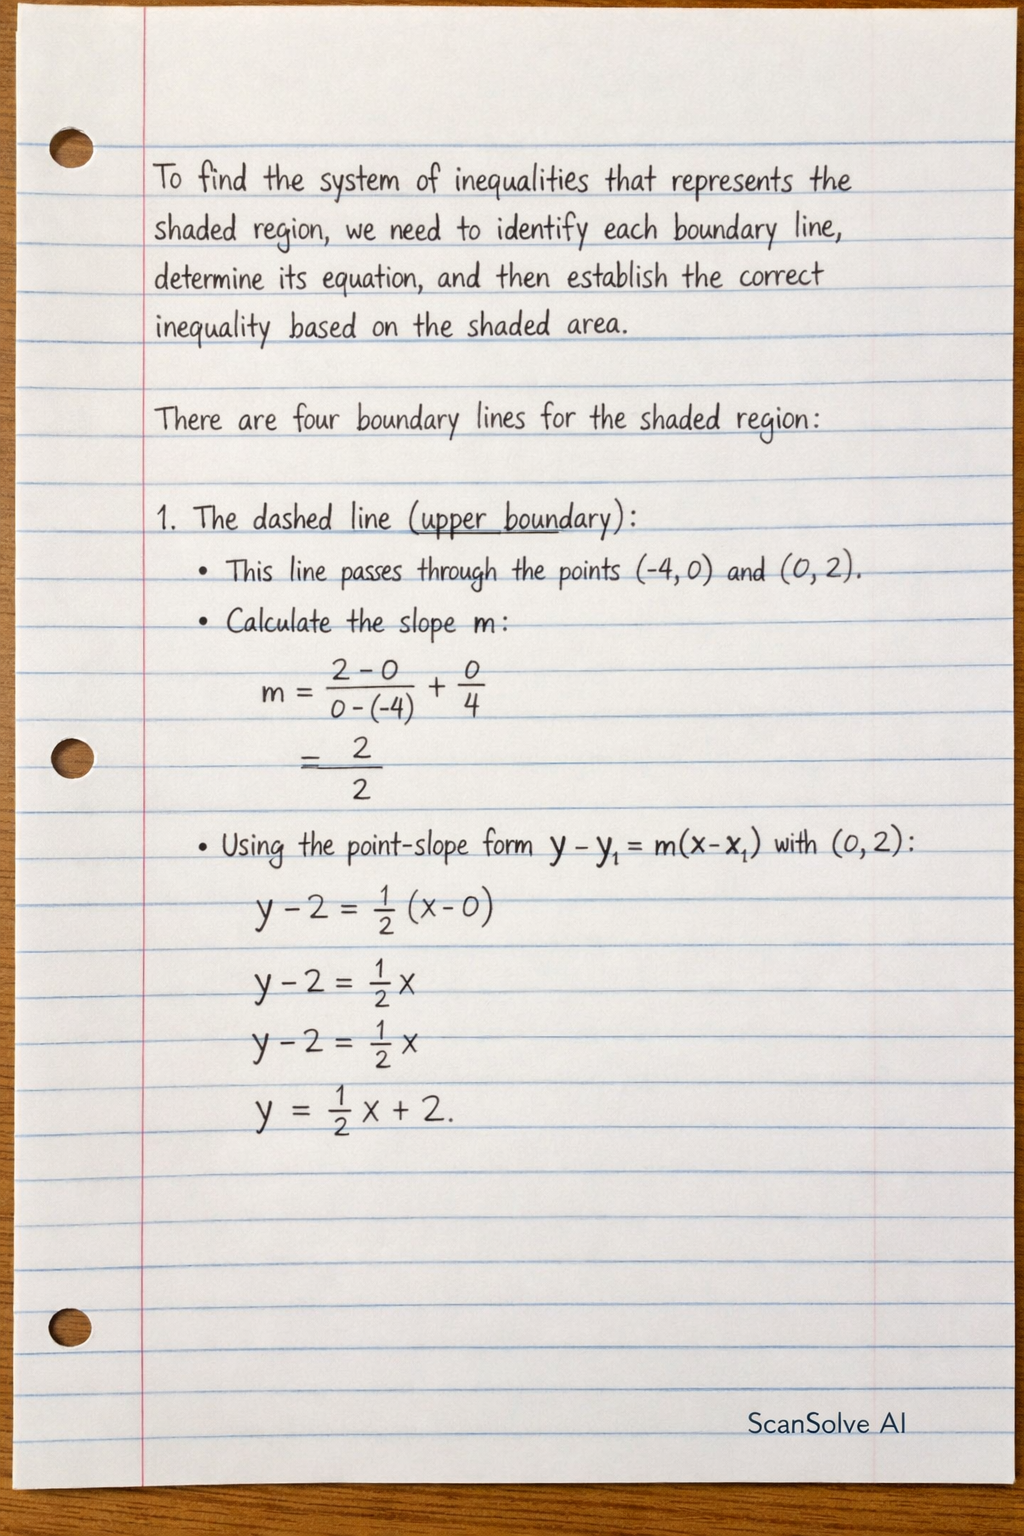 To find the system of inequalities that represents the
shaded region, we need to identify each boundary line,
determine its equation, and then establish the correct
inequality based on the shaded area.
There are four boundary lines for the shaded region:
1. The dashed line (upper boundary):
• This line passes through the points (-4, 0) and (0, 2).
• Calculate the slope m:
m = (2 - 0)/(0 - (-4)) + 0/4
= 2/2
• Using the point-slope form y - y₁ = m(x - x₁) with (0, 2):
y - 2 = 1/2 (x - 0)
y - 2 = 1/2 x
y - 2 = 1/2 x
y = 1/2 x + 2.
ScanSolve AI